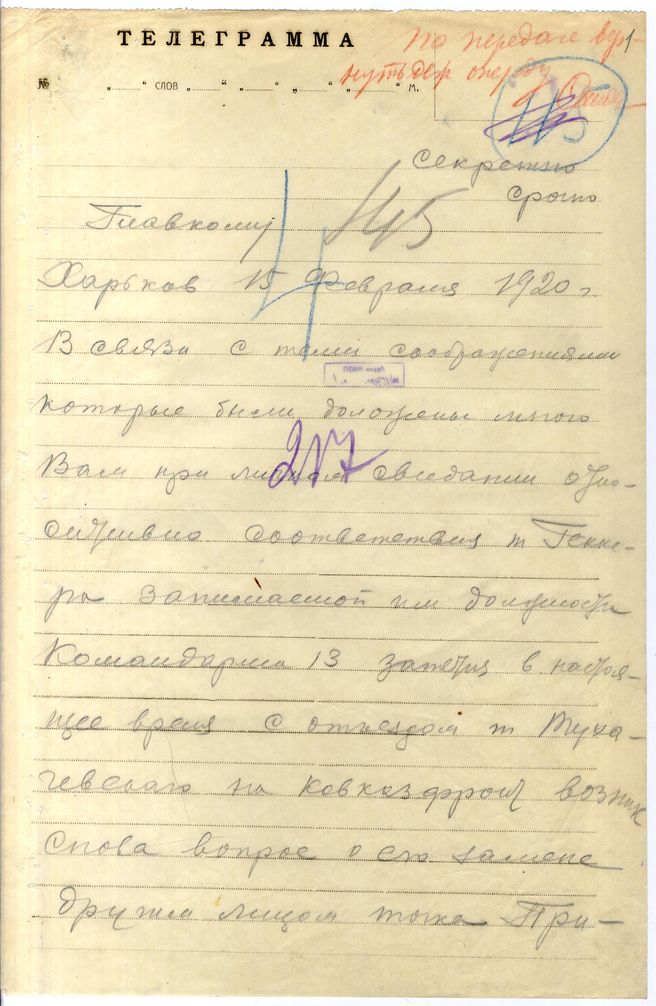 ТЕЛЕГРАММА
По передаче вер-
нуть
№ „ “ слов „ “ „ “ „ “ м.
115
Секретно
срочно
Главкому
145
Харьков 15 Февраля 1920 г
В связи с теми соображениями
которые были доложены мною
Вам при личном свидании отно-
сительно соответствия т Гекке-
ра занимаемой им должности
Командарма 13 затем в настоя-
щее время с отъездом т Туха-
чевского на Кавказфронт возник
снова вопрос о его замене
другим лицом тоже При-
217